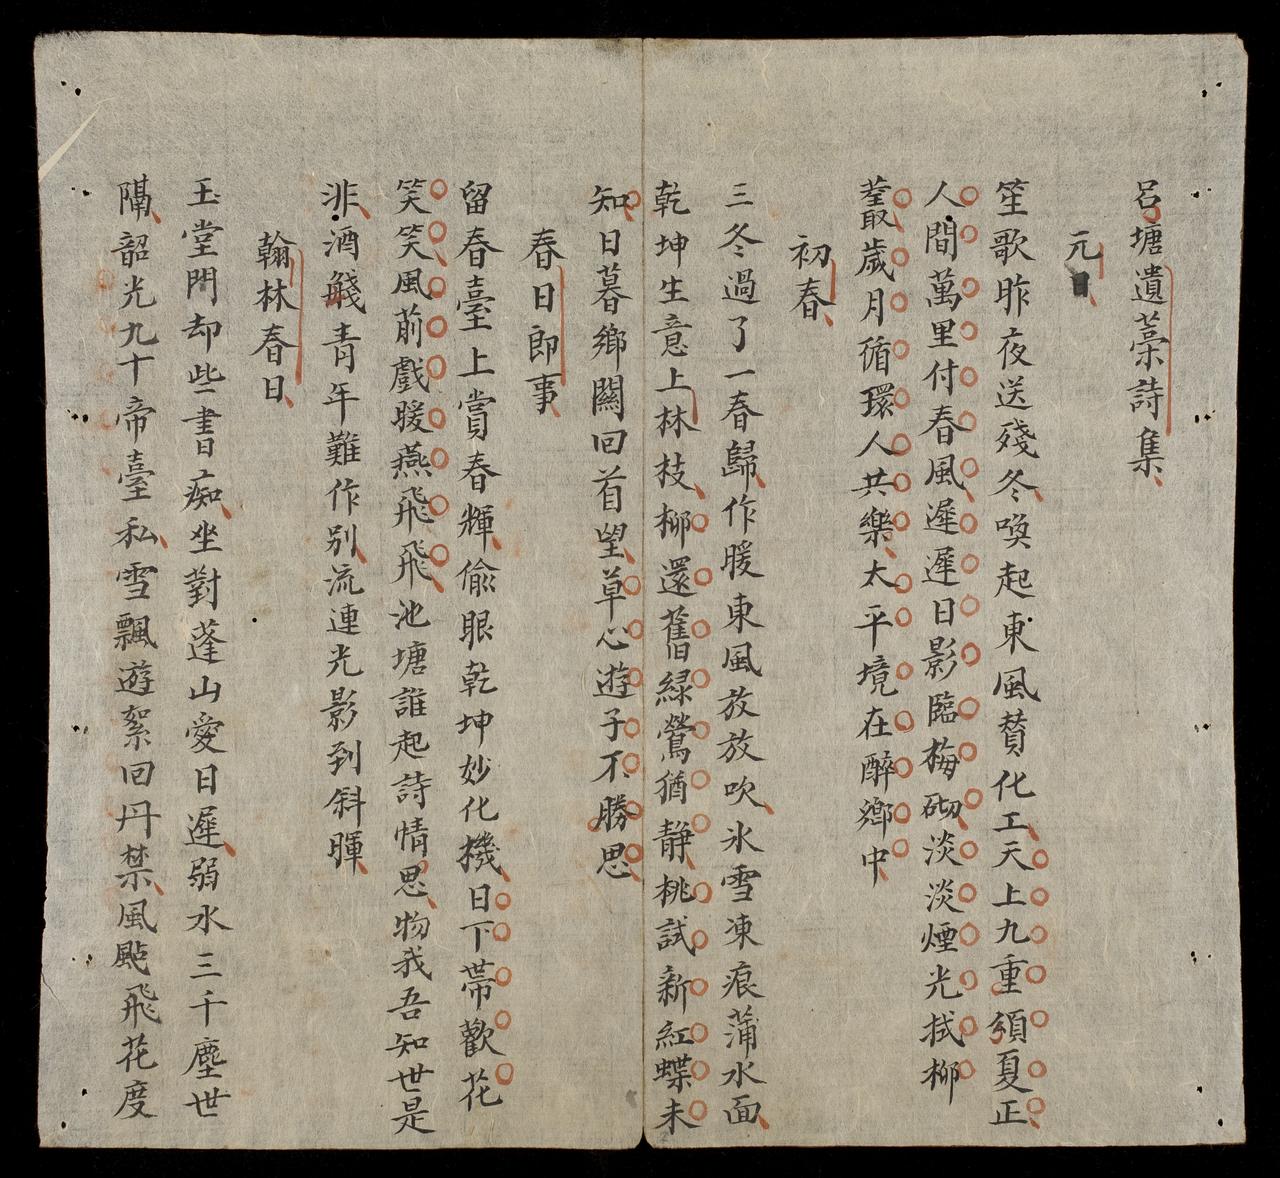 呂塘遺藁詩集
元日
笙歌昨夜送殘冬喚起東風賛化工天上九重頒夏正
人間萬里付春風遲遲日影臨梅砌淡淡煙光拭柳
叢歲月循環人共樂太平境在醉鄉中
初春
三冬過了一春歸作暖東風放放吹氷雪凍痕蒲水面
乾坤生意上林枝柳還舊緑鶯猶静桃試新紅蝶未
知日暮鄉關回首望草心遊子不勝思
春日即事
留春臺上賞春輝偷眼乾坤妙化機日下帶歡花
笑笑風前戲暖燕飛飛池塘誰起詩情思物我吾知世是
非酒餞青年難作別流連光影到斜暉
翰林春日
玉堂門却些書痴坐對蓬山愛日遲弱水三千塵世
隔韶光九十帝臺私雪飄遊絮回丹禁風颭飛花度